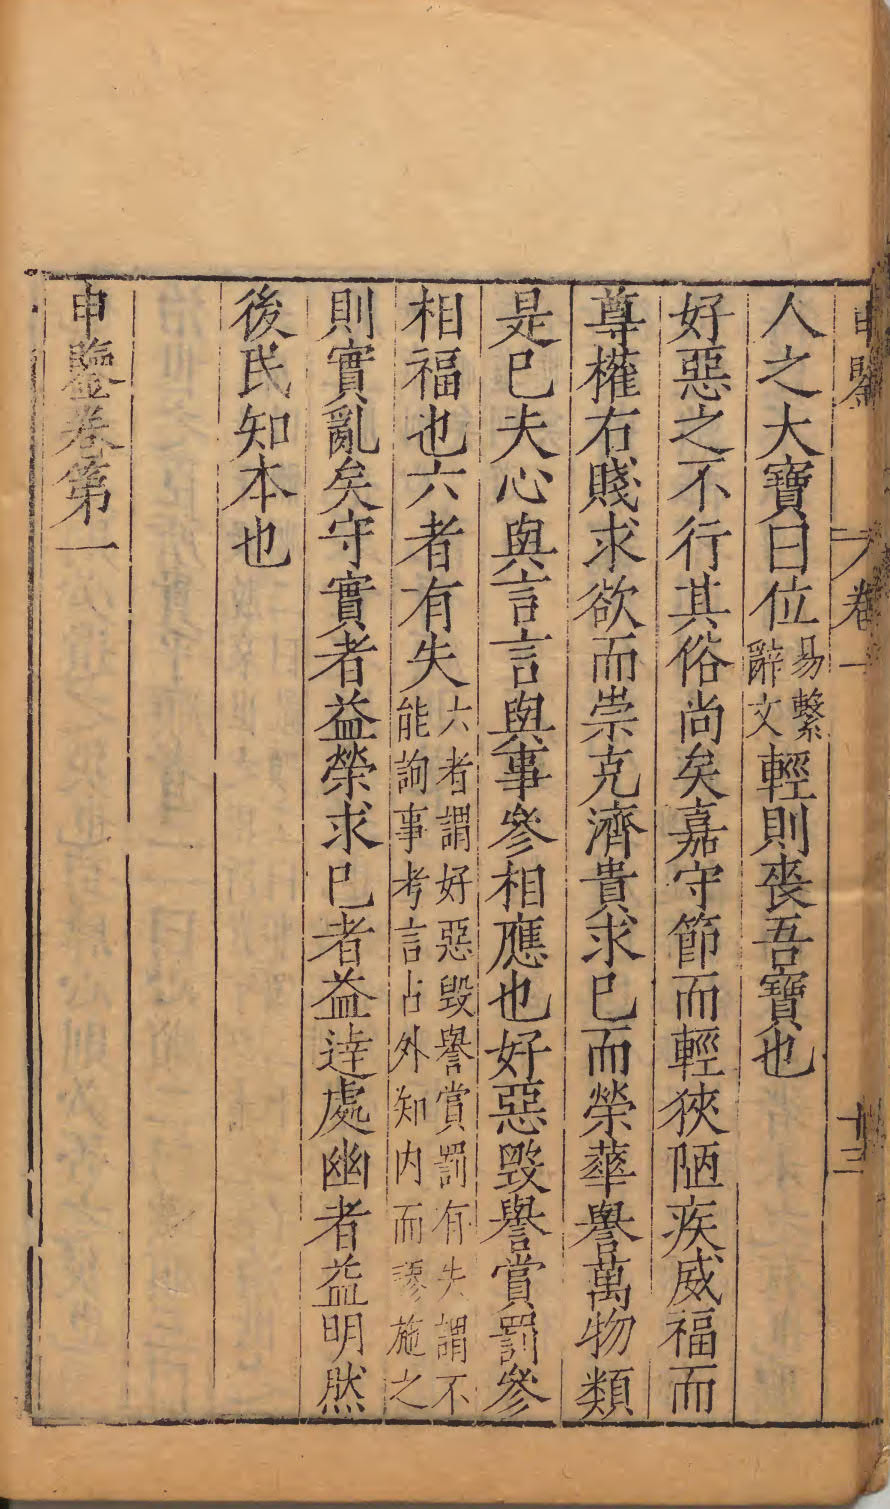 申鑒
卷一
十三
人之大寶曰位易繫辭文輕則喪吾寶也
好惡之不行其俗尚矣嘉守節而輕狹陋疾威福而
尊權右賤求欲而崇克濟貴求巳而榮華譽萬物類
是巳夫心與言言與事參相應也好惡毀譽賞罰參
相福也六者有失六者謂好惡毀譽賞罰有失謂不能詢事考言占外知内而謬施之
則實亂矣守實者益榮求巳者益逹處幽者益明然
後民知本也
申鑒卷第一